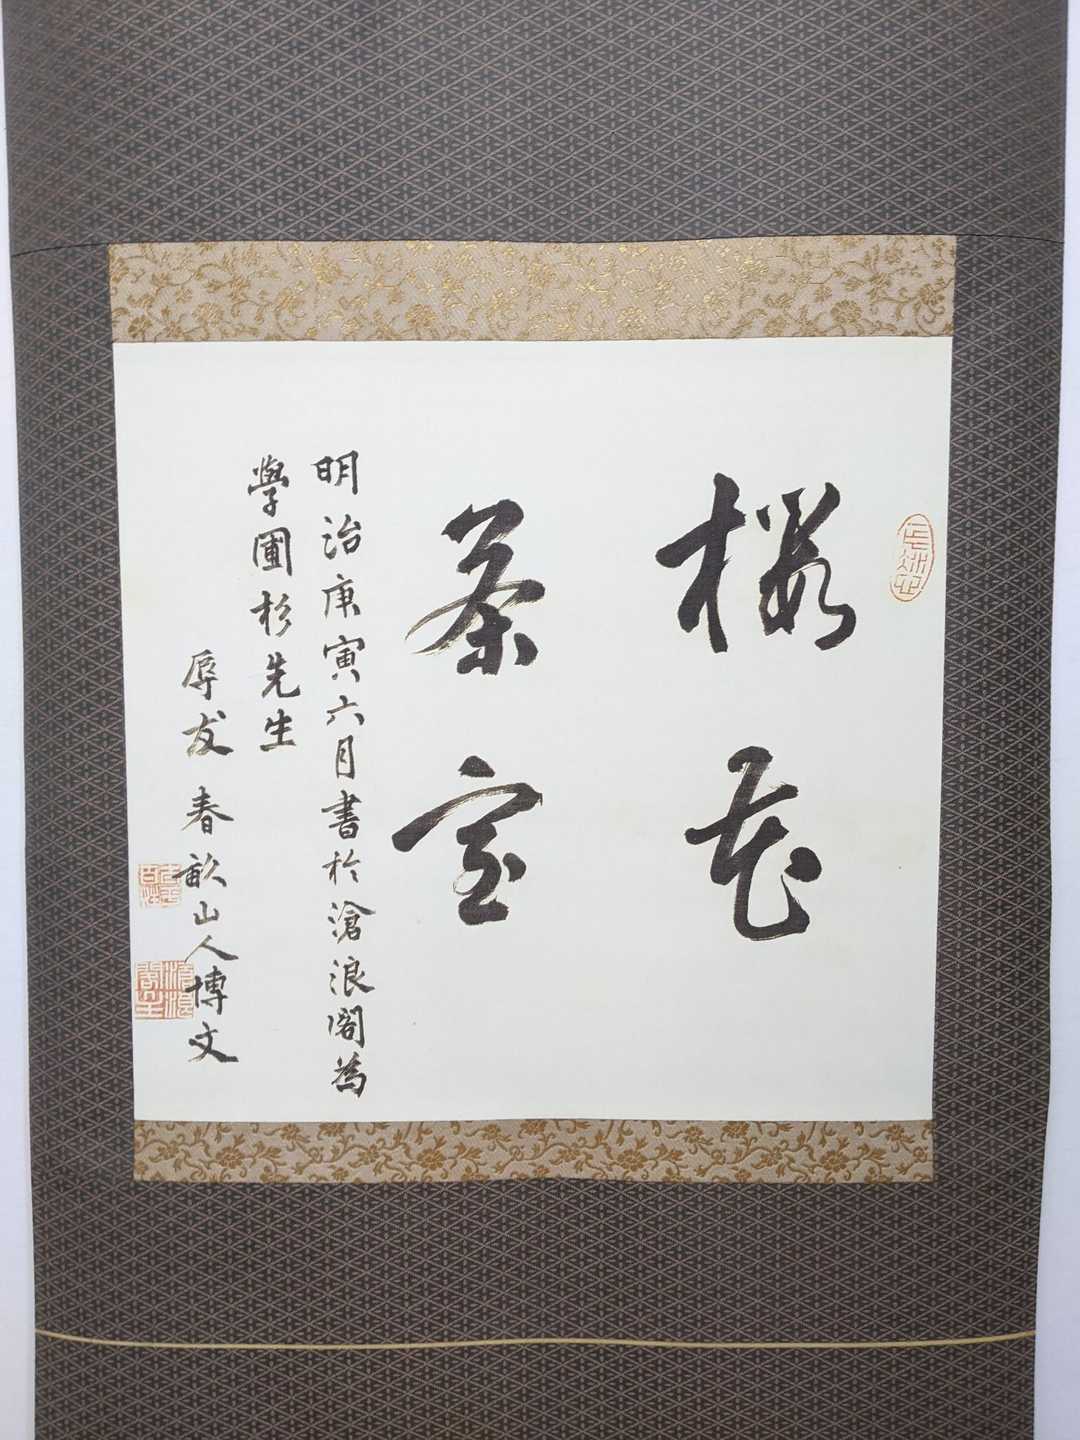 櫻花
茶室
明治庚寅六月書於滄浪閣為
學圃杉先生
辱友春畝山人博文
滄浪閣主